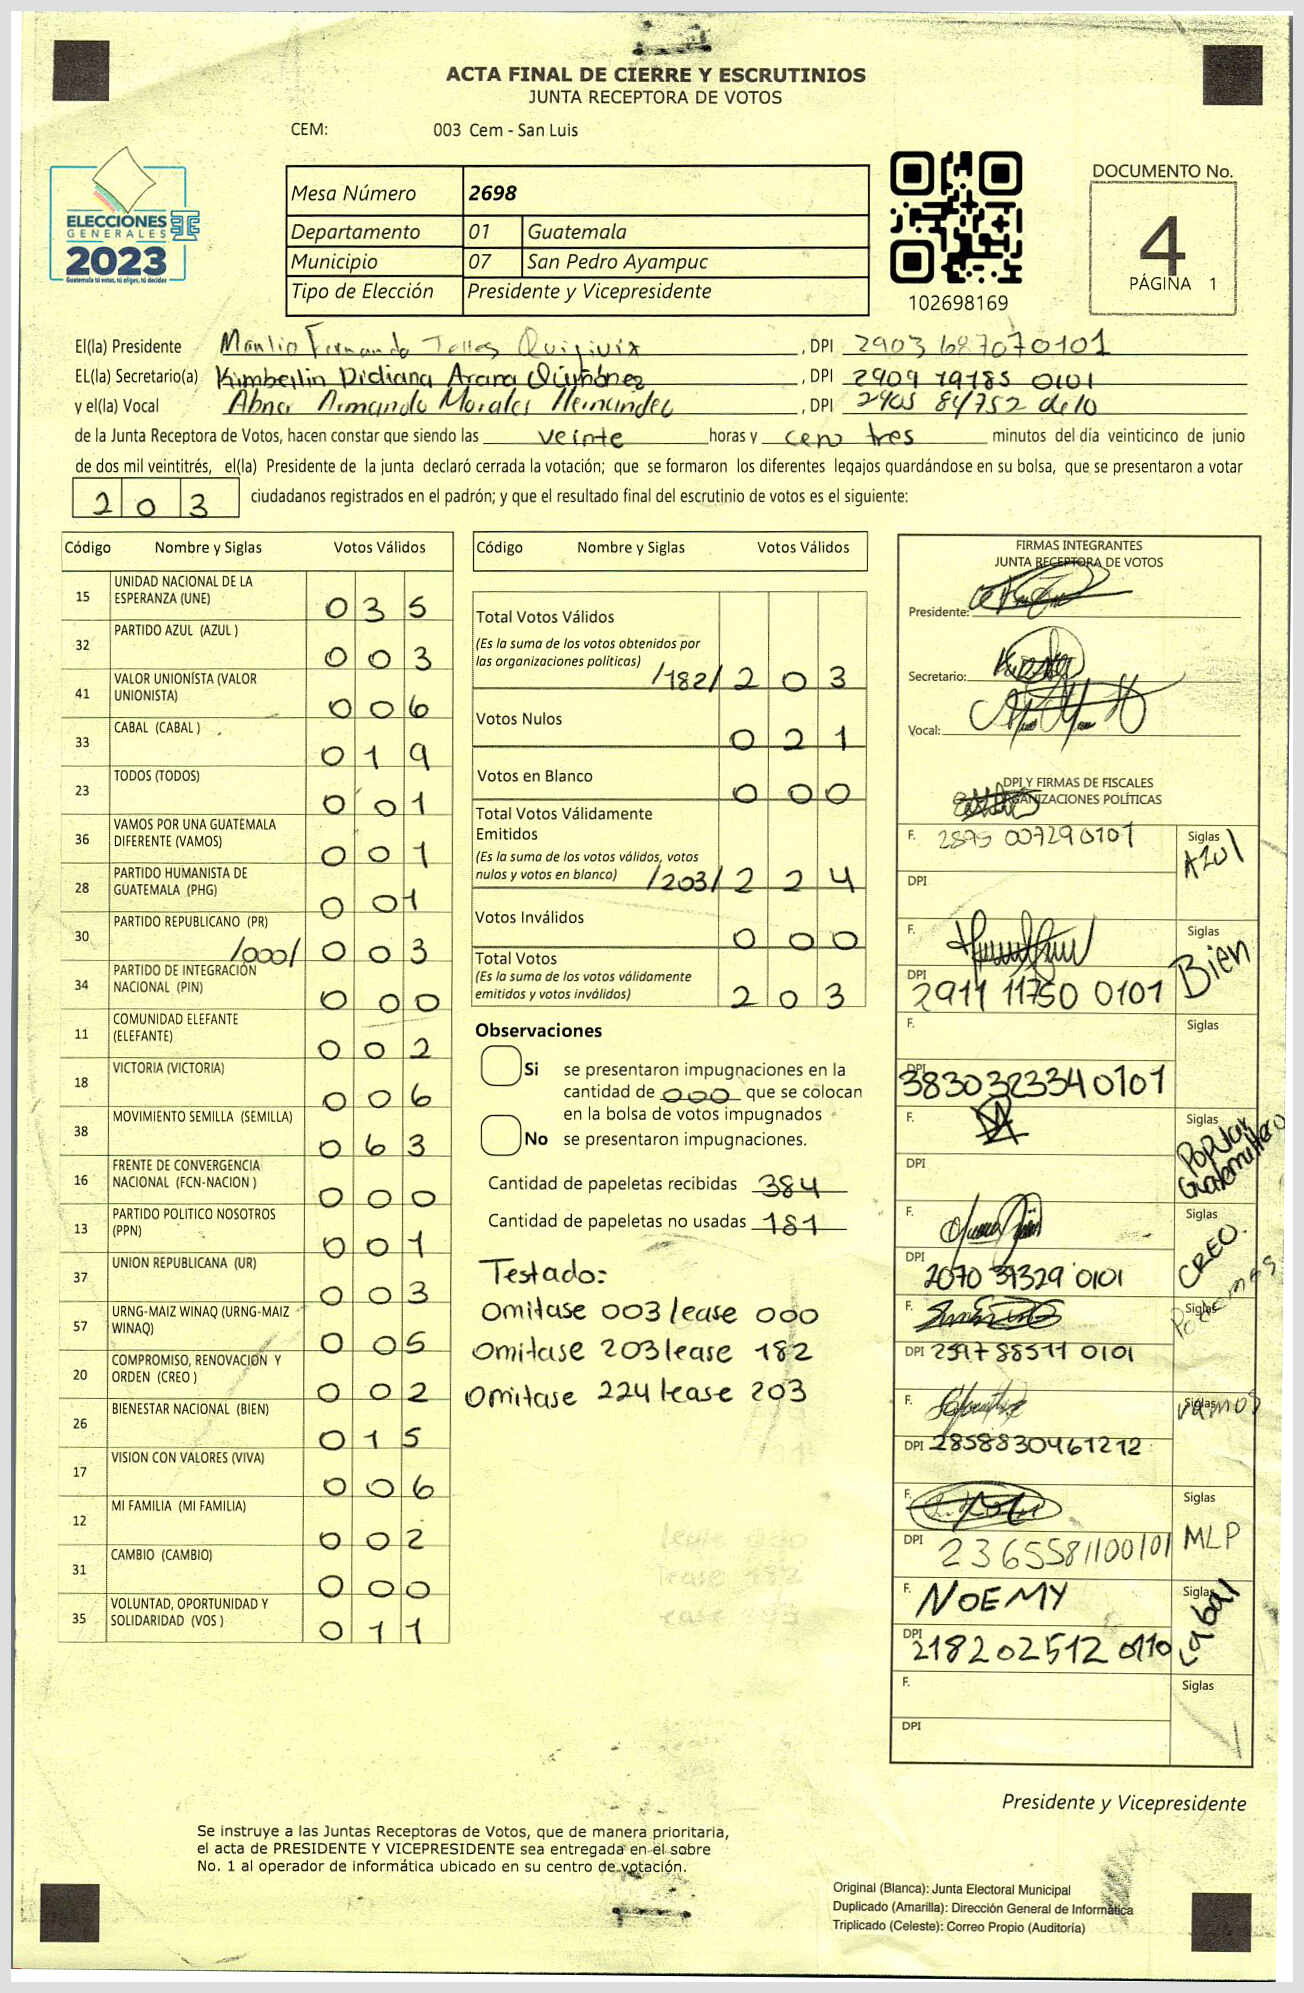 ACTA FINAL DE CIERRE Y ESCRUTINIOS
JUNTA RECEPTORA DE VOTOS
CEM: 003 Cem - San Luis
ELECCIONES
GENERALES
2023
Guatemala tú votas, tú eliges, tú decides
Mesa Número 2698
Departamento 01 Guatemala
Municipio 07 San Pedro Ayampuc
Tipo de Elección Presidente y Vicepresidente
102698169
DOCUMENTO No.
4
PÁGINA 1
El(la) Presidente Manlio Fernando Telles Quiquivix, DPI 2903 687070101
EL(la) Secretario(a) Kimberlin Didiana Arana Quiñónez, DPI 2909 79785 0101
y el(la) Vocal Abner Armando Morales Hernandez, DPI 2905 84752
de la Junta Receptora de Votos, hacen constar que siendo las veinte horas y cero tres minutos del día veinticinco de junio
de dos mil veintitrés, el(la) Presidente de la junta declaró cerrada la votación; que se formaron los diferentes legajos guardándose en su bolsa, que se presentaron a votar
203 ciudadanos registrados en el padrón; y que el resultado final del escrutinio de votos es el siguiente:
Código Nombre y Siglas Votos Válidos
15 UNIDAD NACIONAL DE LA ESPERANZA (UNE) 035
32 PARTIDO AZUL (AZUL ) 003
41 VALOR UNIONISTA (VALOR UNIONISTA) 006
33 CABAL (CABAL ) 019
23 TODOS (TODOS) 001
36 VAMOS POR UNA GUATEMALA DIFERENTE (VAMOS) 001
28 PARTIDO HUMANISTA DE GUATEMALA (PHG) 001
30 PARTIDO REPUBLICANO (PR) /000/ 003
34 PARTIDO DE INTEGRACIÓN NACIONAL (PIN) 000
11 COMUNIDAD ELEFANTE (ELEFANTE) 002
18 VICTORIA (VICTORIA) 006
38 MOVIMIENTO SEMILLA (SEMILLA) 063
16 FRENTE DE CONVERGENCIA NACIONAL (FCN-NACION ) 000
13 PARTIDO POLITICO NOSOTROS (PPN) 001
37 UNION REPUBLICANA (UR) 003
57 URNG-MAIZ WINAQ (URNG-MAIZ WINAQ) 005
20 COMPROMISO, RENOVACION Y ORDEN (CREO ) 002
26 BIENESTAR NACIONAL (BIEN) 015
17 VISION CON VALORES (VIVA) 006
12 MI FAMILIA (MI FAMILIA) 002
31 CAMBIO (CAMBIO) 000
35 VOLUNTAD, OPORTUNIDAD Y SOLIDARIDAD (VOS ) 011
Código Nombre y Siglas Votos Válidos
Total Votos Válidos
(Es la suma de los votos obtenidos por
las organizaciones políticas) /182/ 203
Votos Nulos 021
Votos en Blanco 000
Total Votos Válidamente
Emitidos
(Es la suma de los votos válidos, votos
nulos y votos en blanco) /203/ 224
Votos Inválidos 000
Total Votos
(Es la suma de los votos válidamente
emitidos y votos inválidos) 203
Observaciones
Si se presentaron impugnaciones en la
cantidad de 000 que se colocan
en la bolsa de votos impugnados
No se presentaron impugnaciones.
Cantidad de papeletas recibidas 384
Cantidad de papeletas no usadas 181
Testado:
Omitase 003 lease 000
Omitase 203 lease 182
Omitase 224 lease 203
FIRMAS INTEGRANTES
JUNTA RECEPTORA DE VOTOS
Presidente:
Secretario:
Vocal:
DPI Y FIRMAS DE FISCALES
ORGANIZACIONES POLÍTICAS
F. 2895 007290101 Siglas Azul
DPI
F. Siglas Bien
DPI 2911 11750 0101
F. Siglas
DPI 3830323340101
F. Siglas Popular Guatemalteco
DPI
F. Siglas CREO.
DPI 2070 39329 0101
F. Siglas Podemos
DPI 2597 88511 0101
F. Siglas Vamos
DPI 2858830461212
F. Siglas MLP
DPI 2365581100101
F. NOEMY Siglas Cabal
DPI 218202512 0110
F. Siglas
DPI
Presidente y Vicepresidente
Se instruye a las Juntas Receptoras de Votos, que de manera prioritaria,
el acta de PRESIDENTE Y VICEPRESIDENTE sea entregada en el sobre
No. 1 al operador de informática ubicado en su centro de votación.
Original (Blanca): Junta Electoral Municipal
Duplicado (Amarilla): Dirección General de Informática
Triplicado (Celeste): Correo Propio (Auditoría)